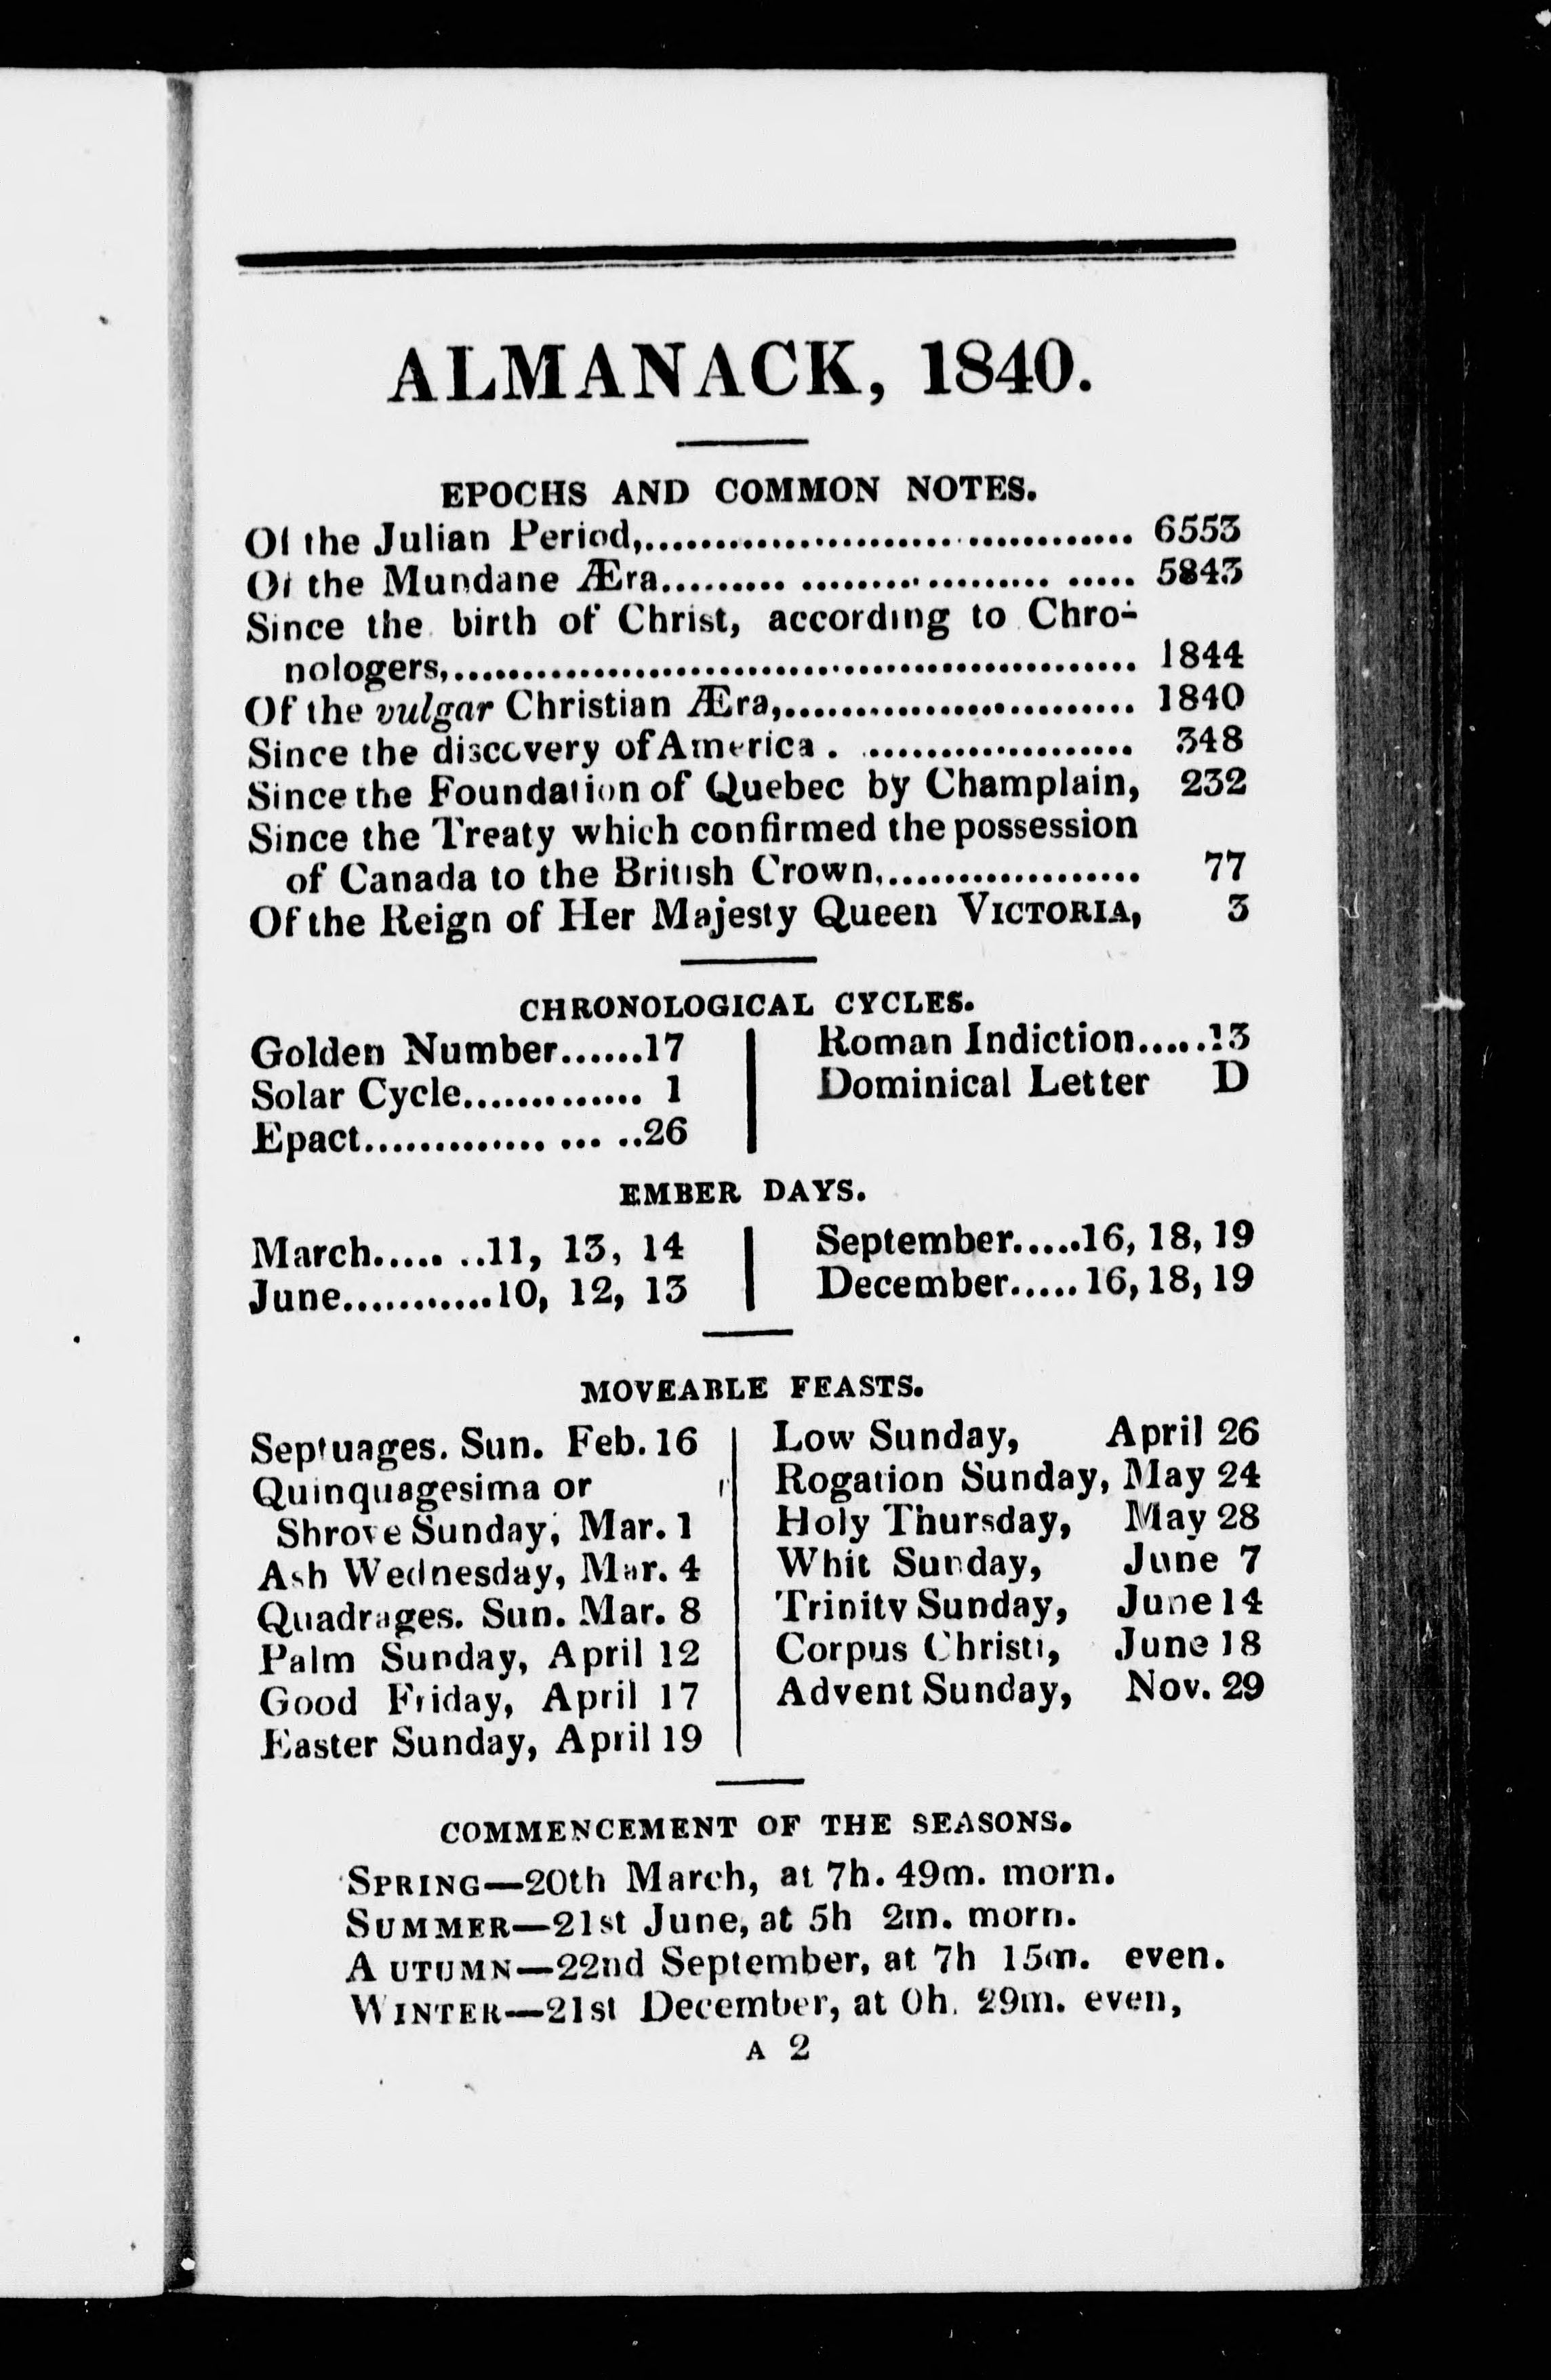 ALMANACK, 1840.
EPOCHS AND COMMON NOTES.
Of the Julian Period,........................................ 6553
Of the Mundane Æra........................................ 5843
Since the birth of Christ, according to Chro-
nologers,........................................ 1844
Of the vulgar Christian Æra,........................................ 1840
Since the discovery of America . .................... 348
Since the Foundation of Quebec by Champlain, 232
Since the Treaty which confirmed the possession
of Canada to the British Crown,.................... 77
Of the Reign of Her Majesty Queen VICTORIA, 3
CHRONOLOGICAL CYCLES.
Golden Number......17
Solar Cycle............. 1
Epact.............. ... ..26
Roman Indiction.....13
Dominical Letter D
EMBER DAYS.
March..... ..11, 13, 14
June...........10, 12, 13
September.....16, 18, 19
December.....16, 18, 19
MOVEABLE FEASTS.
Septuages. Sun. Feb. 16
Quinquagesima or
Shrove Sunday, Mar. 1
Ash Wednesday, Mar. 4
Quadrages. Sun. Mar. 8
Palm Sunday, April 12
Good Friday, April 17
Easter Sunday, April 19
Low Sunday, April 26
Rogation Sunday, May 24
Holy Thursday, May 28
Whit Sunday, June 7
Trinity Sunday, June 14
Corpus Christi, June 18
Advent Sunday, Nov. 29
COMMENCEMENT OF THE SEASONS.
SPRING—20th March, at 7h. 49m. morn.
SUMMER—21st June, at 5h 2m. morn.
AUTUMN—22nd September, at 7h 15m. even.
WINTER—21st December, at 0h. 29m. even,
A 2